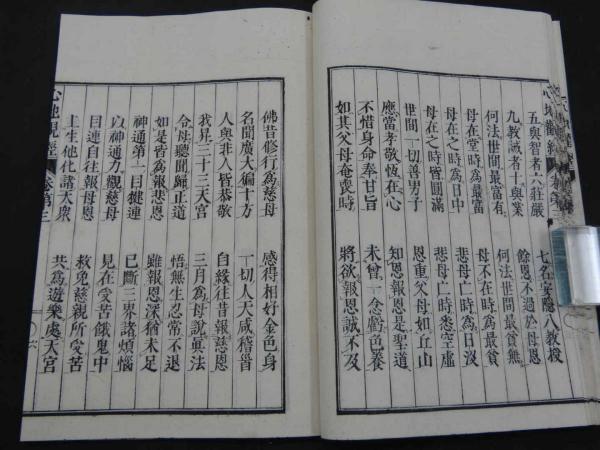 五與智者六莊嚴　七名安隱八教授
九教誡者十與業　餘恩不過於母恩
何法世間最富有　何法世間最貧無
母在堂時為最富　母不在時為最貧
母在之時為日中　悲母亡時為日沒
母在之時皆圓滿　悲母亡時悉空虛
世間一切善男子　恩重父母如丘山
應當孝敬恆在心　知恩報恩是聖道
不惜身命奉甘旨　未曾一念虧色養
如其父母奄喪時　將欲報恩誠不及
佛昔修行為慈母　感得相好金色身
名聞廣大徧十方　一切人天咸稽首
人與非人皆恭敬　自緣往昔報慈恩
我昇三十三天宮　三月為母說真法
令母聽聞歸正道　悟無生忍常不退
如是皆為報悲恩　雖報恩深猶未足
神通第一目犍連　已斷三界諸煩惱
以神通力觀慈母　見在受苦餓鬼中
目連自往報母恩　救免慈親所受苦
上生他化諸天眾　共為遊樂處天宮
心地觀經　卷第三　六